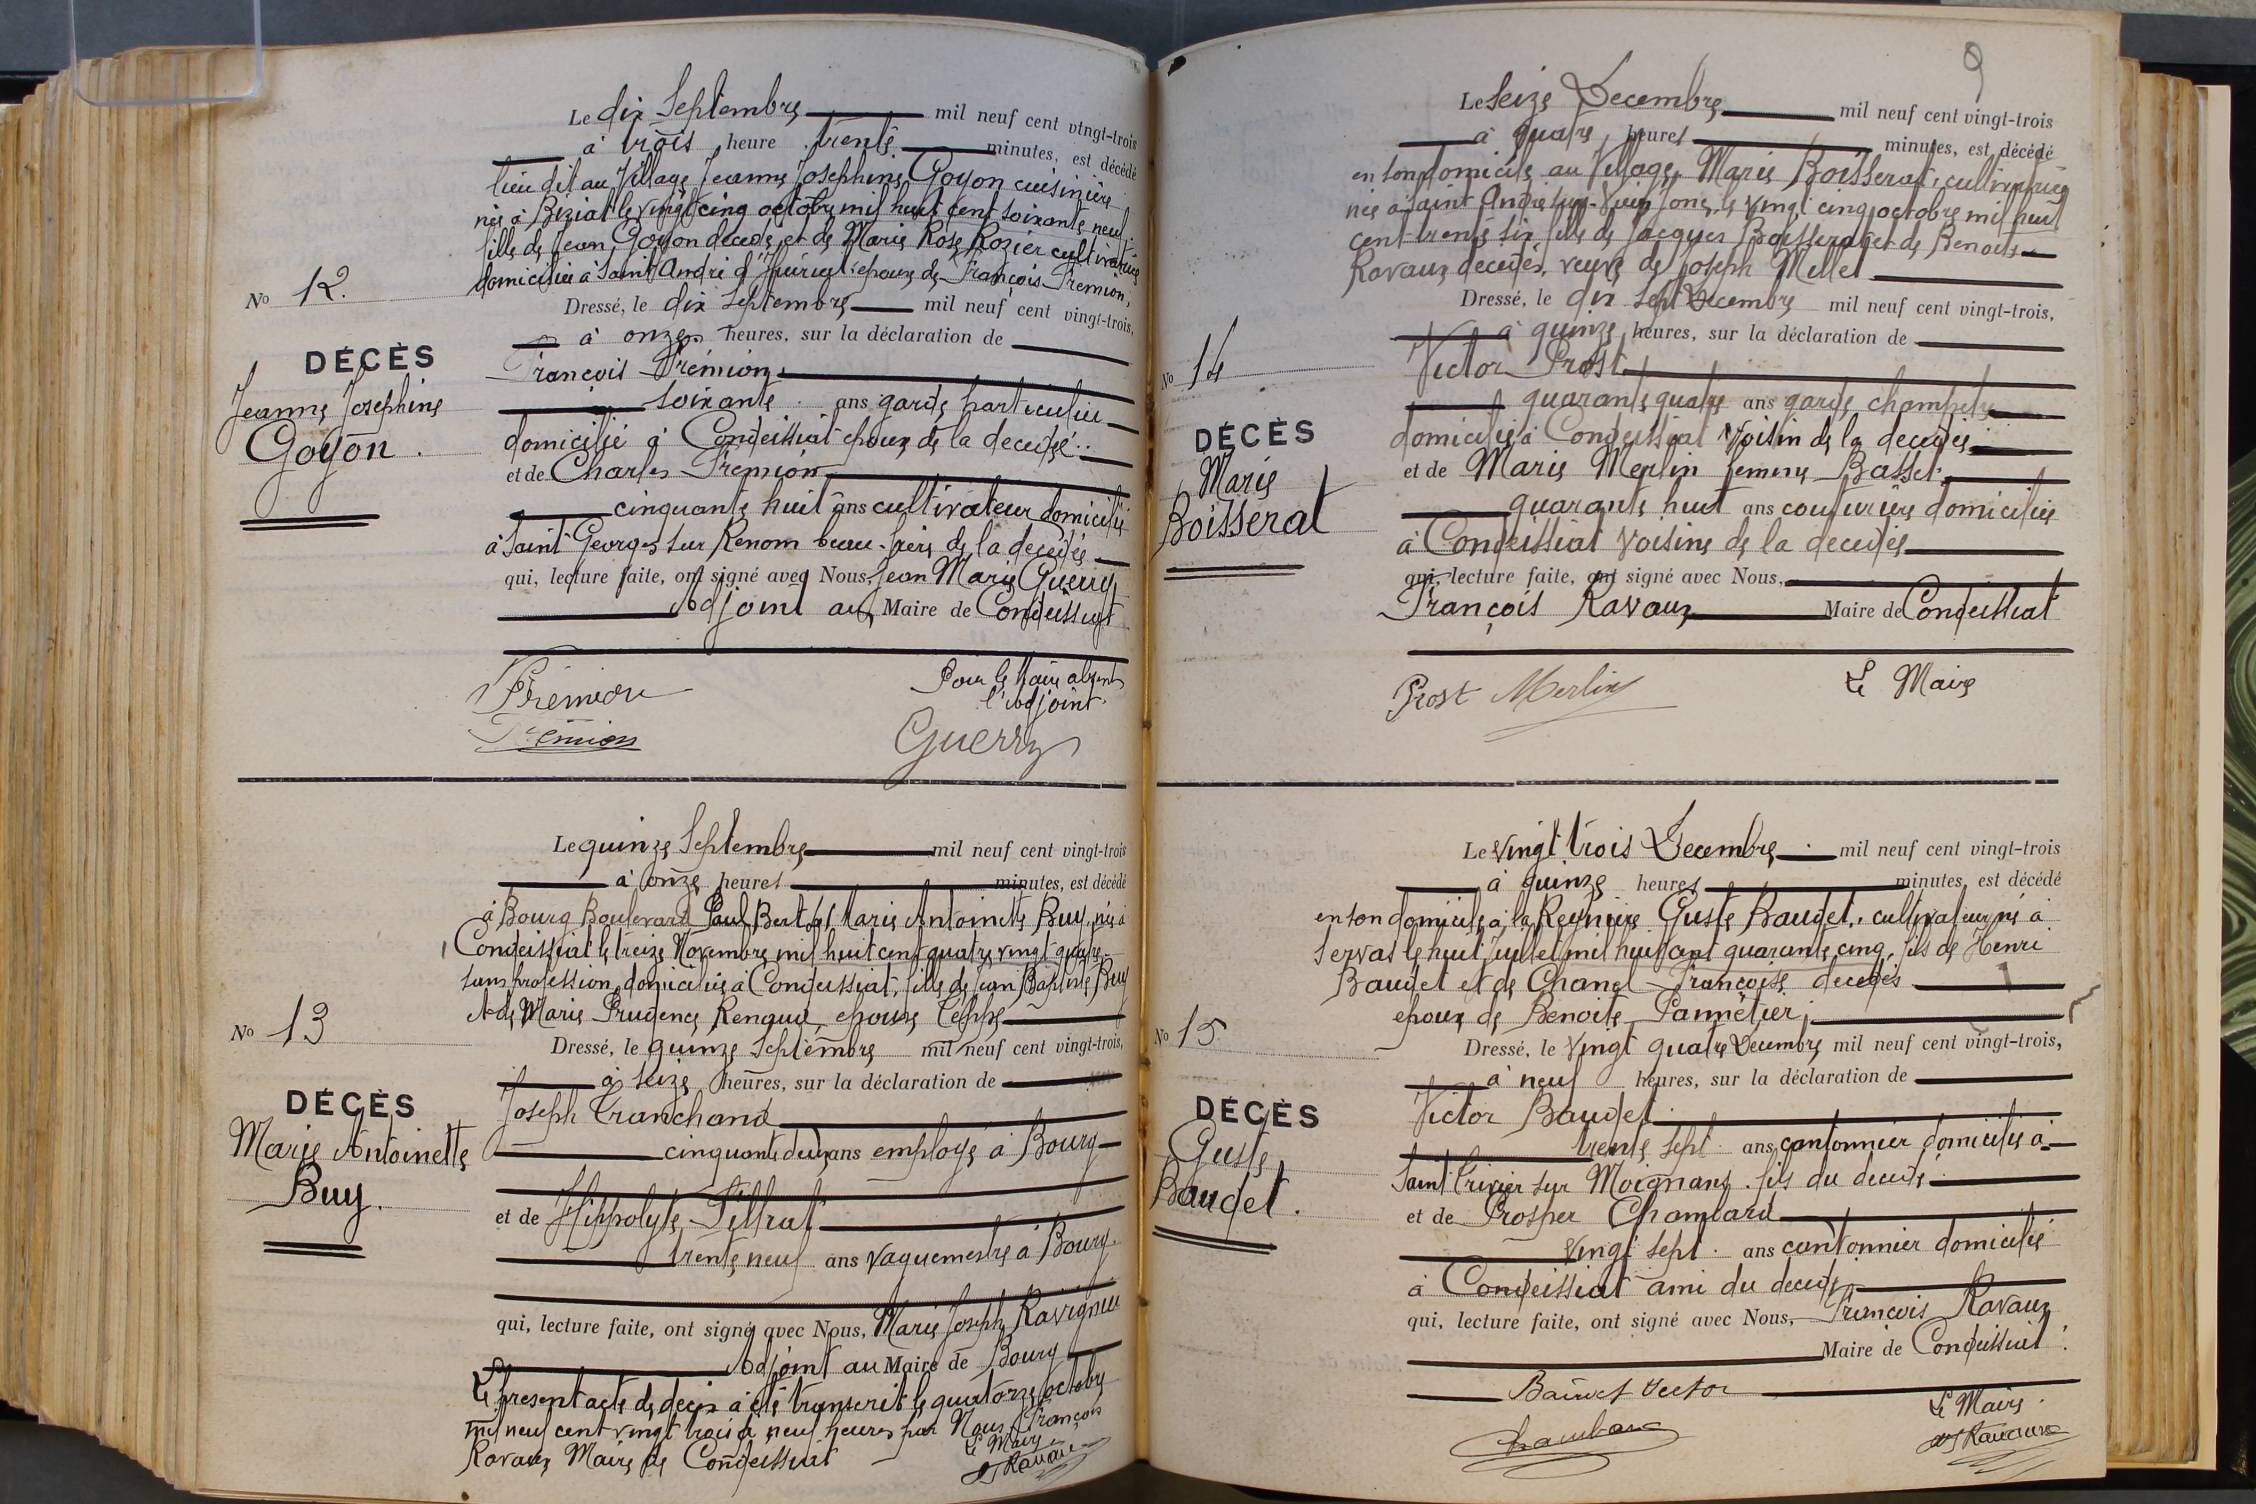 Le dix Septembre mil neuf cent vingt-trois
à trois heure trente minutes, est décédé
lieu dit au Village Jeanne Josephine Goyon cuisinière
née à Biziat le vingt cinq octobre mil huit cent soixante neuf
fille de Jean Goyon decedé et de Marie Rose Rozier cultivatrice
domiciliée à Saint André d'Huiriat epouse de François Tremion,
No 12.
Dressé, le dix Septembre mil neuf cent vingt-trois,
à onze heures, sur la déclaration de
DÉCÈS
Jeanne Josephine
Goyon.
François Prémion
soixante ans garde particulier
domicilié à Condeissiat epoux de la decedée
et de Charles Prémion
cinquante huit ans cultivateur domicilié
à Saint Georges sur Renom beau-frère de la decedée
qui, lecture faite, ont signé avec Nous, Jean Marie Guerry
Adjoint au Maire de Condeissiat
Prémion
Pour le Maire absent
l'adjoint
Prémion
Guerry
Le quinze Septembre mil neuf cent vingt-trois
à onze heures minutes, est décédé
à Bourg Boulevard Paul Bert Marie Antoinette Buy, née à
Condeissiat le treize Novembre mil huit cent quatre vingt quatre
sans profession, domiciliée à Condeissiat, fille de Jean Baptiste Buy
et de Marie Prudence Renaud, epouse
No 13
Dressé, le quinze Septembre mil neuf cent vingt-trois,
à seize heures, sur la déclaration de
DÉCÈS
Marie Antoinette
Buy.
Joseph Tranchand
cinquante deux ans employé à Bourg
et de Hippolyte
trente neuf ans vaguemestre à Bourg.
qui, lecture faite, ont signé avec Nous, Marie Joseph
Adjoint au Maire de Bourg
Le present acte de décès a été transcrit le quatorze octobre
mil neuf cent vingt trois à neuf heures par Nous François
Ravaux Maire de Condeissiat
Le Maire
Ravaux
9
Le Seize Decembre mil neuf cent vingt-trois
à quatre heures minutes, est décédé
en son domicile au Village, Marie Boisserat, cultivatrice
née à Saint André sur Vieux Jonc le vingt cinq octobre mil huit
cent trente six fille de Jacques Boisserat et de Benoite
Ravaux decedés, veuve de Joseph Millet
Dressé, le dix sept Decembre mil neuf cent vingt-trois,
à quinze heures, sur la déclaration de
No 14
DÉCÈS
Marie
Boisserat
Victor Prost
quarante quatre ans garde champetre
domicilié à Condeissiat Voisin de la decedée
et de Marie Merlin femme Basset
quarante huit ans couturière domiciliée
à Condeissiat Voisine de la decedée
qui, lecture faite, ont signé avec Nous,
François Ravaux Maire de Condeissiat
Prost Merlin
Le Maire
Le vingt trois Decembre mil neuf cent vingt-trois
à quinze heures minutes, est décédé
en son domicile à la Reynière Guste Baudet, cultivateur né à
Servas le huit Juillet mil huit cent quarante cinq, fils de Henri
Baudet et de Chanel Françoise decedés
epoux de Benoite Pannetier
No 15
Dressé, le vingt quatre Decembre mil neuf cent vingt-trois,
à neuf heures, sur la déclaration de
DÉCÈS
Guste
Baudet.
Victor Baudet
trente sept ans cantonnier domicilié à
Saint Trivier sur Moignans fils du decedé
et de Prosper Chambard
vingt sept ans cantonnier domicilié
à Condeissiat ami du decedé
qui, lecture faite, ont signé avec Nous, François Ravaux
Maire de Condeissiat
Baudet Victor
Le Maire
Chambard
Ravaux